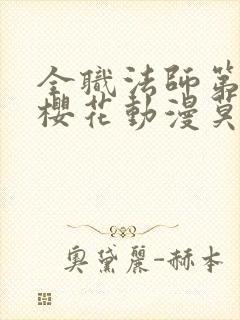 全職法師第
櫻花動漫莫
奧黛麗-赫本